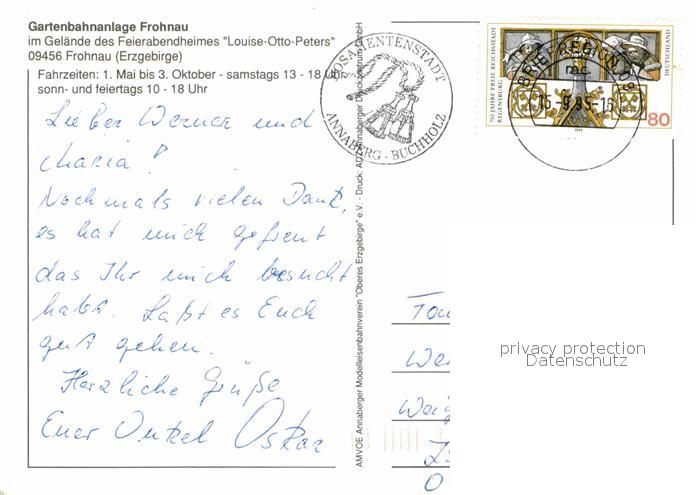 Gartenbahnanlage Frohnau
im Gelände des Feierabendheimes "Louise-Otto-Peters"
09456 Frohnau (Erzgebirge)
Fahrzeiten: 1. Mai bis 3. Oktober - samstags 13 - 18 Uhr
sonn- und feiertags 10 - 18 Uhr
Lieber Werner und
Maria!
Nochmals vielen Dank,
es hat mich gefreut
das Ihr mich besucht
habt. Laßt es Euch
gut gehen.
Herzliche Grüße
Euer Onkel Oskar
AMVOE Annaberger Modelleisenbahnverein "Oberes Erzgebirge" e.V. - Druck: ADZ Annaberger Druckzentrum GmbH
POSAMENTENSTADT
ANNABERG - BUCHHOLZ
750 JAHRE FREIE REICHSSTADT
REGENSBURG
DEUTSCHLAND
1995
80
BRIEFREGION 09
privacy protection
Datenschutz